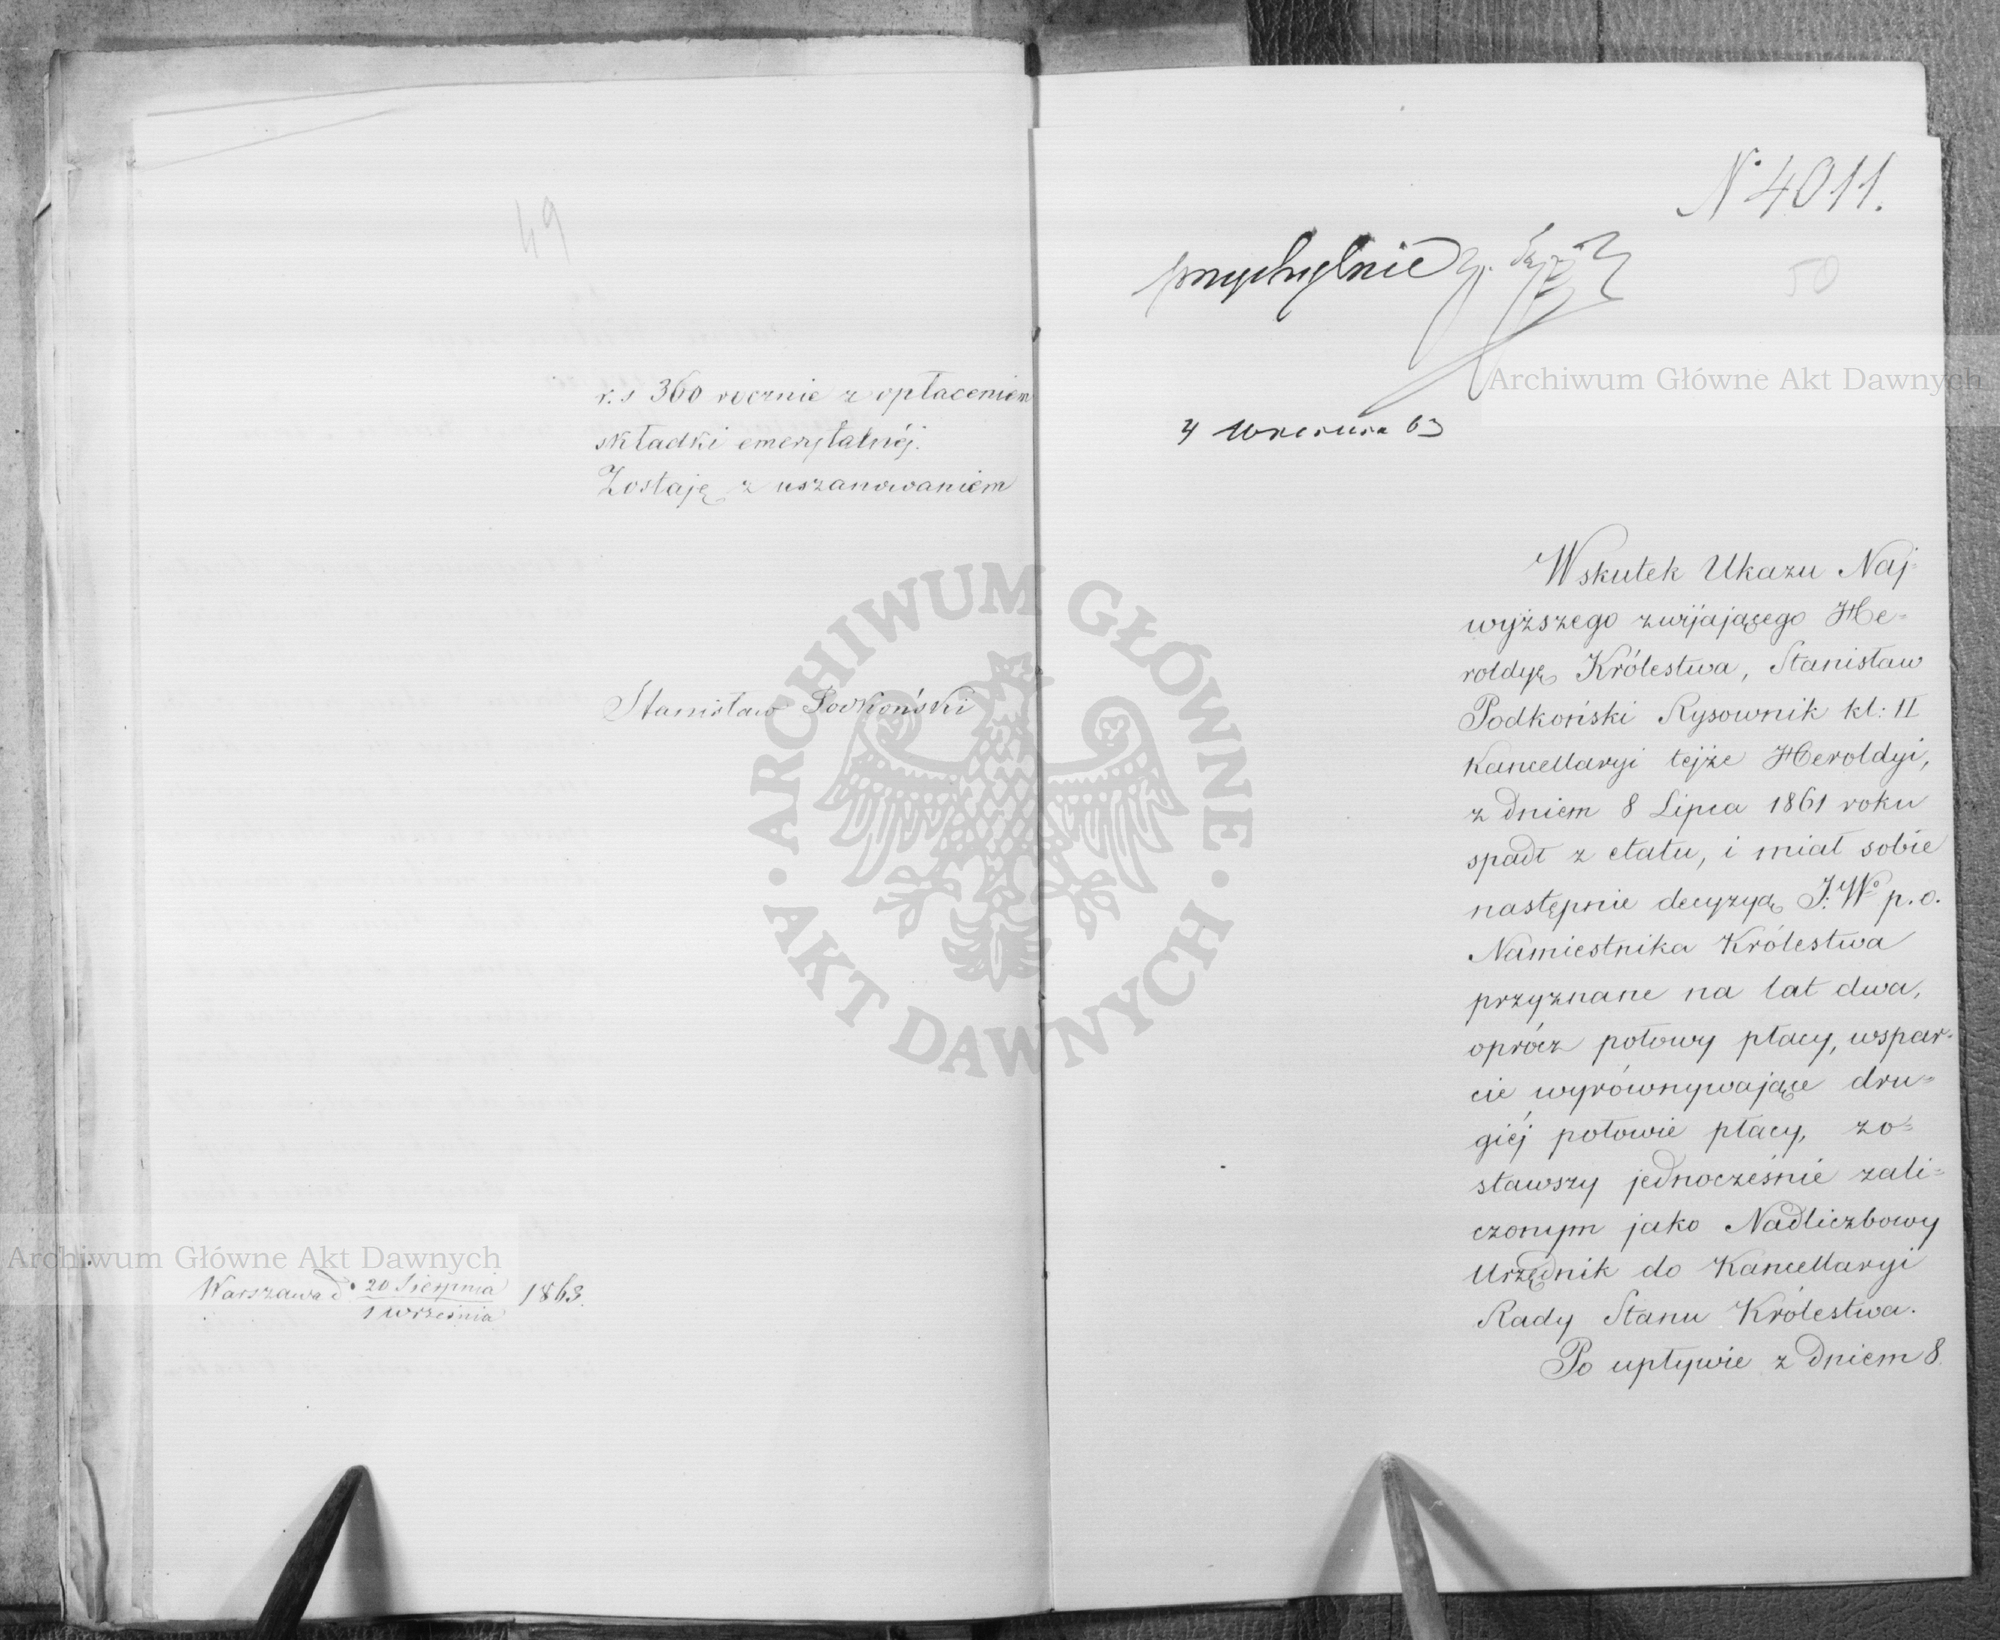 49
r. s 360 rocznie z opłaceniem
składki emerytalnéj.
Zostaję z uszanowaniem
Stanisław Podkoński
Warszawa d. 20 Sierpnia
1 września 1863.
N. 4011.
przychylnie
50
4 Września 63
Wskutek Ukazu Naj-
wyższego zwijającego He-
roldyę Królestwa, Stanisław
Podkoński Rysownik kl: II
Kancellaryi tejże Heroldyi,
z dniem 8 Lipca 1861 roku
spadł z etatu, i miał sobie
następnie decyzyą J. Wo p. o.
Namiestnika Królestwa
przyznane na lat dwa,
oprócz połowy płacy, wspar-
cie wyrównywające dru-
giéj połowie płacy, zo-
stawszy jednocześnie zali-
czonym jako Nadliczbowy
Urzędnik do Kancellaryi
Rady Stanu Królestwa.
Po upływie z dniem 8
Archiwum Główne Akt Dawnych
Archiwum Główne Akt Dawnych
ARCHIWUM GŁÓWNE AKT DAWNYCH